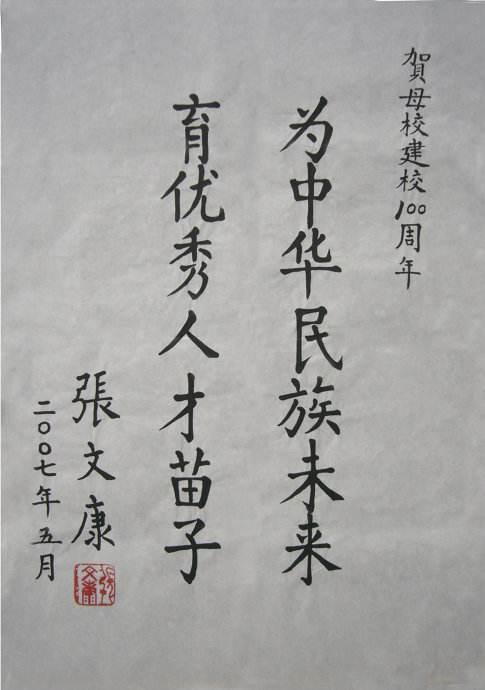 賀母校建校100周年
为中华民族未来
育优秀人才苗子
張文康
二〇〇七年五月